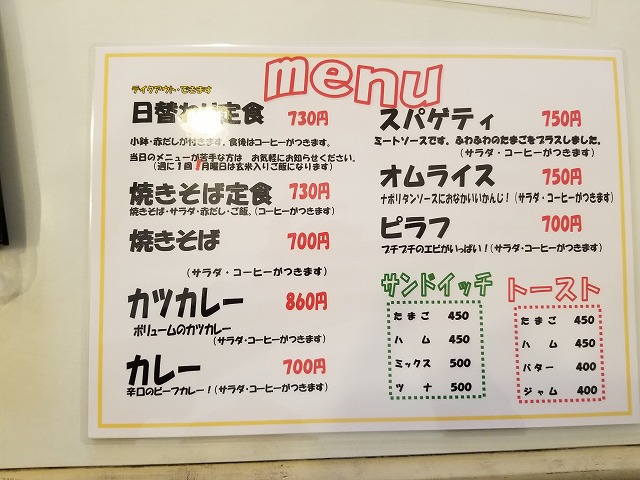 menu
テイクアウト・できます
日替わり定食 730円
小鉢・赤だしが付きます。食後はコーヒーがつきます。
当日のメニューが苦手な方は お気軽にお知らせください。
(週に1回 月曜日は玄米入りご飯になります)
焼きそば定食 730円
焼きそば・サラダ・赤だし・ご飯。(コーヒーがつきます)
焼きそば 700円
(サラダ・コーヒーがつきます)
カツカレー 860円
ボリュームのカツカレー
(サラダ・コーヒーがつきます)
カレー 700円
辛口のビーフカレー!(サラダ・コーヒーがつきます)
スパゲティ 750円
ミートソースです。ふわふわのたまごをプラスしました。
(サラダ・コーヒーがつきます)
オムライス 750円
ナポリタンソースにおなかいいかんじ!(サラダ・コーヒーがつきます)
ピラフ 700円
プチプチのエビがいっぱい!(サラダ・コーヒーがつきます)
サンドイッチ
たまご 450
ハム 450
ミックス 500
ツナ 500
トースト
たまご 450
ハム 450
バター 400
ジャム 400